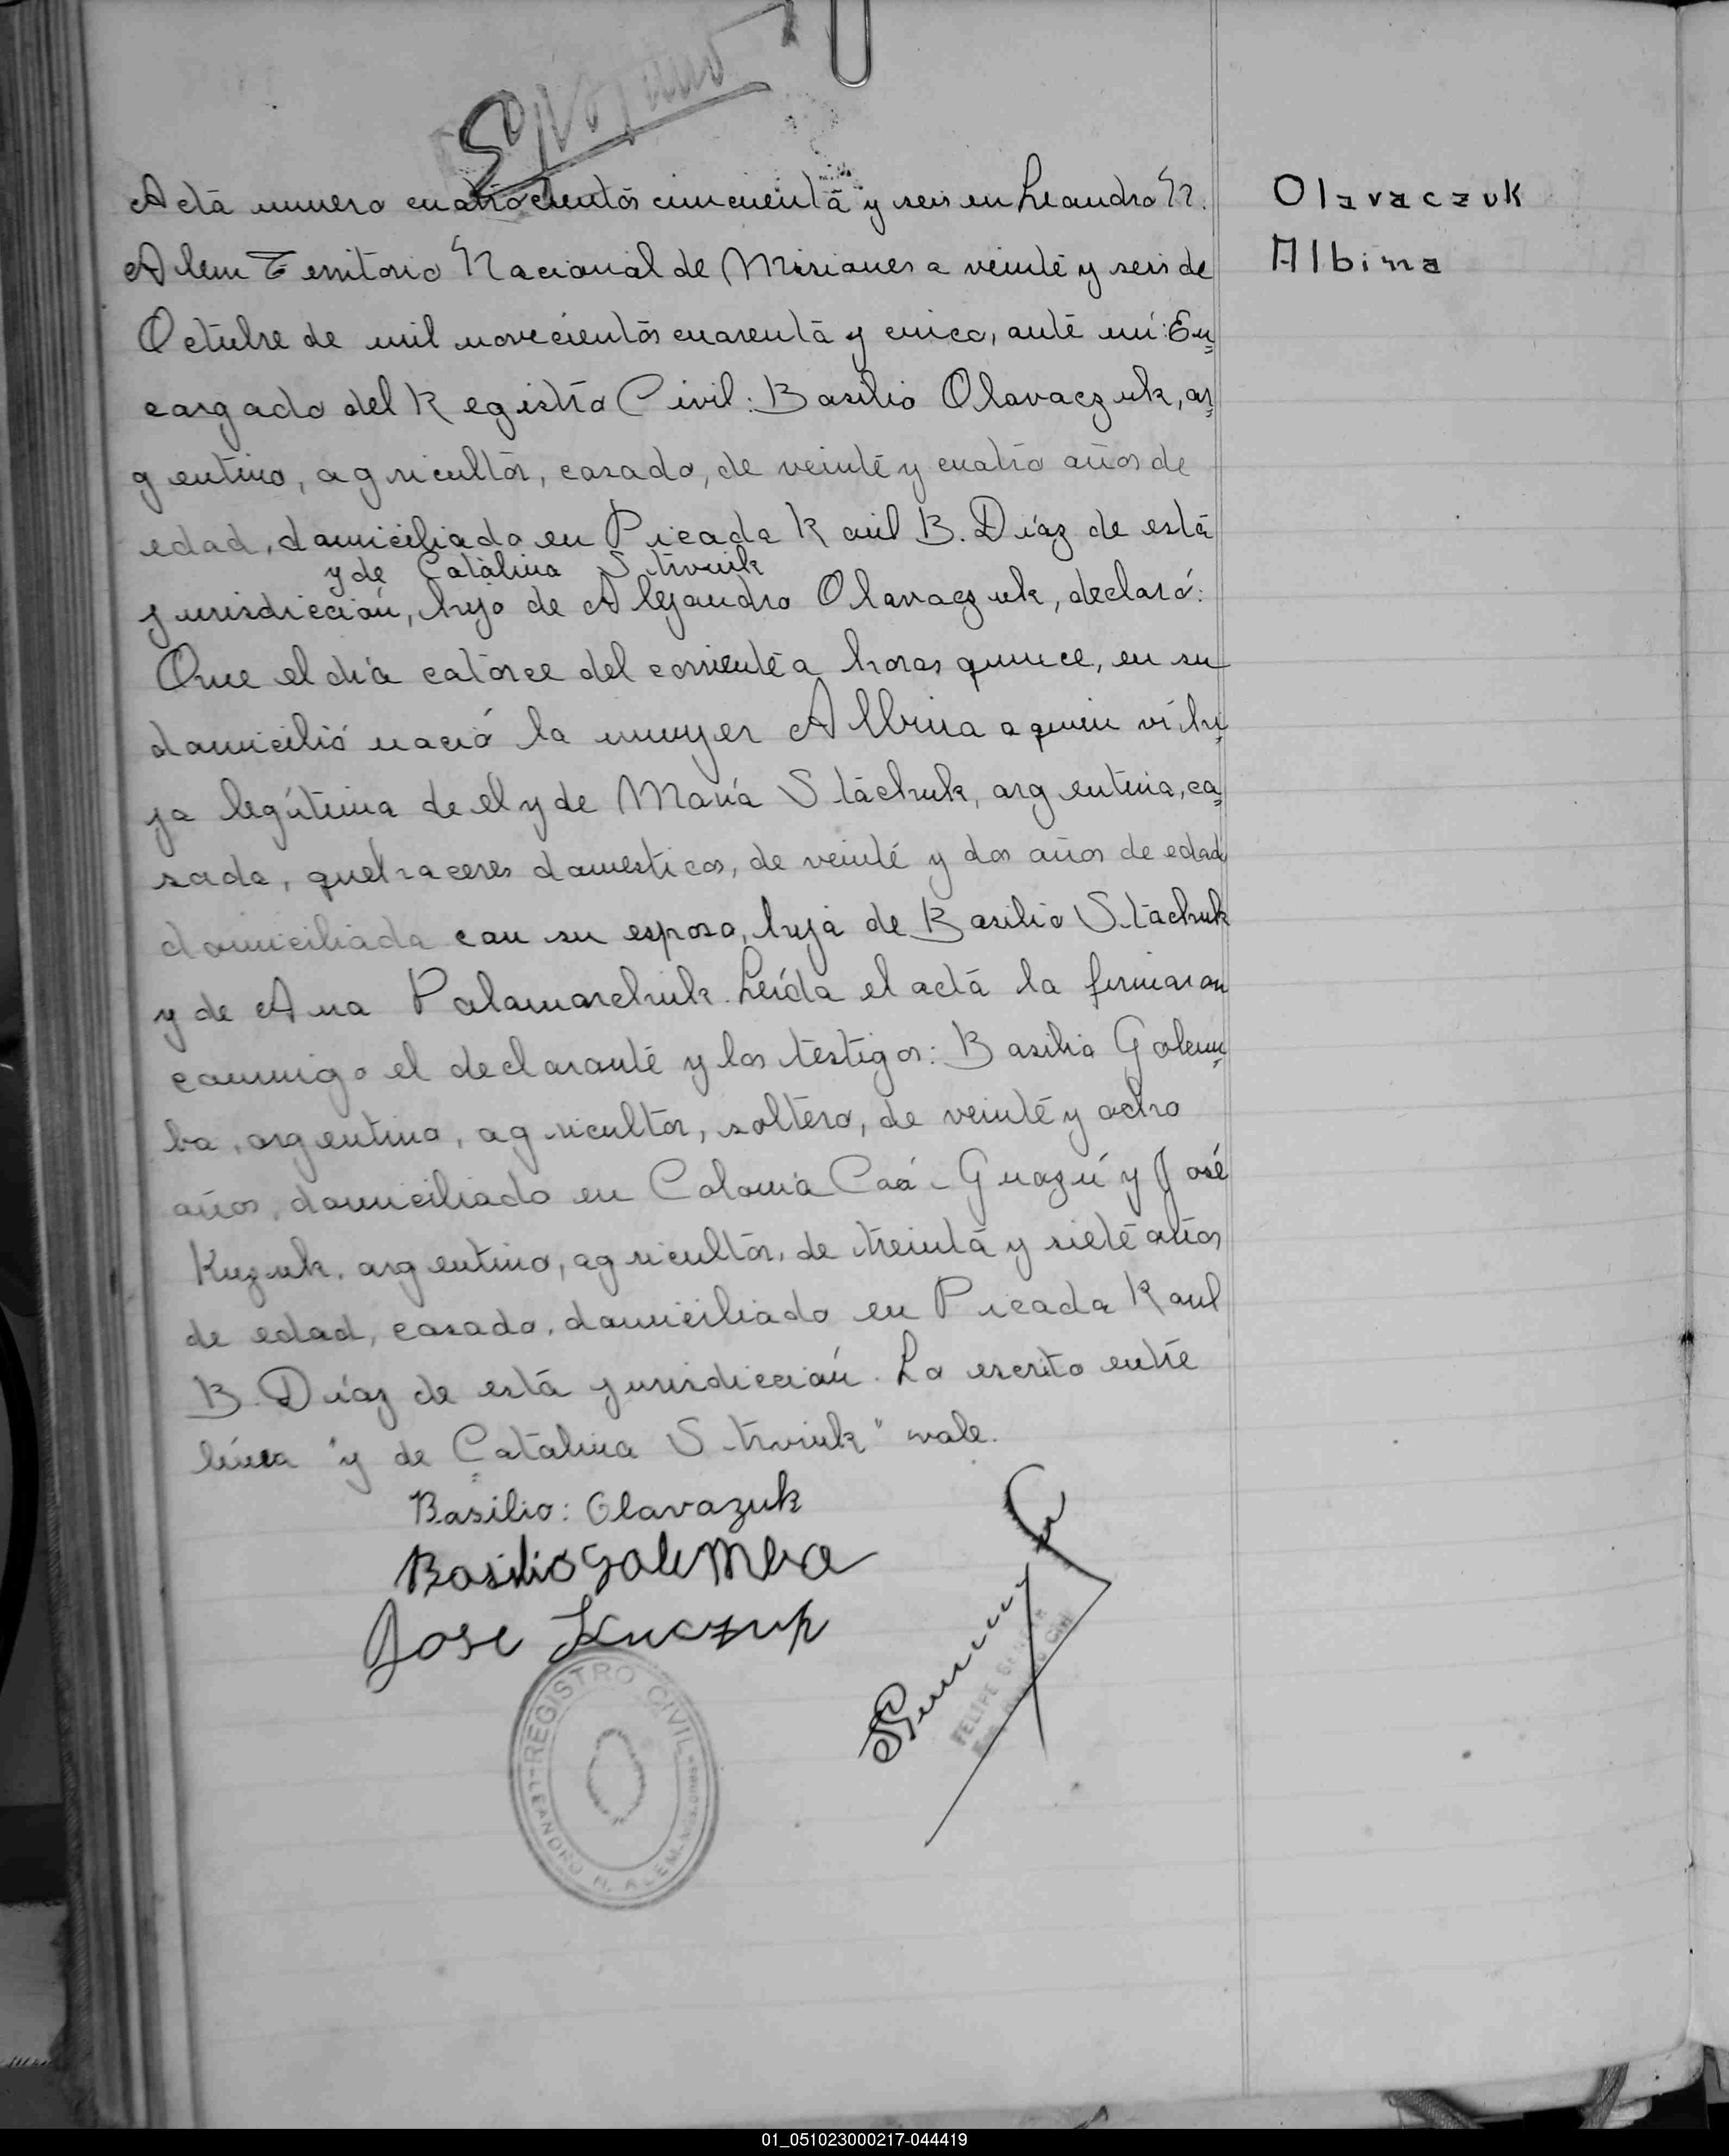 Acta numero cuatrocientos cincuenta y seis en Leandro N.
Alem Territorio Nacional de Misiones a veinte y seis de
Octubre de mil novecientos cuarenta y cinco, ante mi: En=
cargado del Registro Civil: Basilio Olavaczuk, ar=
gentino, agricultor, casado, de veinte y cuatro años de
edad, domiciliado en Picada Raul B. Díaz de esta
y de Catalina Strvuik
jurisdicción, hijo de Alejandro Olavaczuk, declaró:
Que el día catorce del corriente a horas quince, en su
domicilió nació la mujer Albina a quien vi hi=
ja legítima de el y de María Stachuk, argentina, ca=
sada, quehaceres domesticos, de veinte y dos años de edad
domiciliada con su esposo, hija de Basilio Stachuk
y de Ana Palamarchuk. Leída el acta la firmaron
conmigo el declarante y los testigos: Basilio Golem=
ba, argentino, agricultor, soltero, de veinte y ocho
años, domiciliado en Colonia Caá-Guazú y José
Kuzuk, argentino, agricultor, de treinta y siete años
de edad, casado, domiciliado en Picada Raul
B. Díaz de esta jurisdicción. Lo escrito entre
línea "y de Catalina Strvuik" vale.
Basilio: Olavazuk
Basilio Golemba
Jose Kuczuk
REGISTRO CIVIL
LEANDRO N. ALEM
FELIPE
Olavaczuk
Albina
01_051023000217-044419